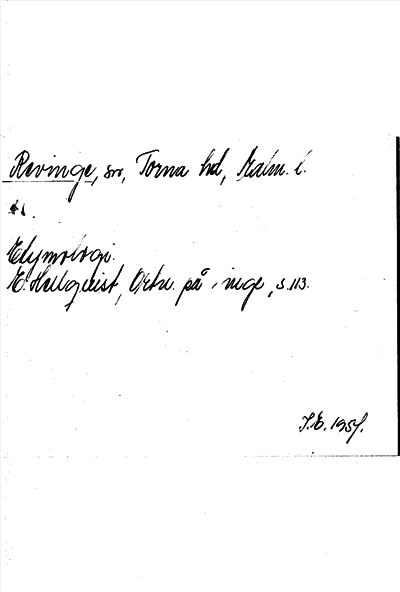 Revinge, sn, Torna hd, Malm. l.
Etymologi.
E. Hellquist, Ortn. på -inge, s. 113.